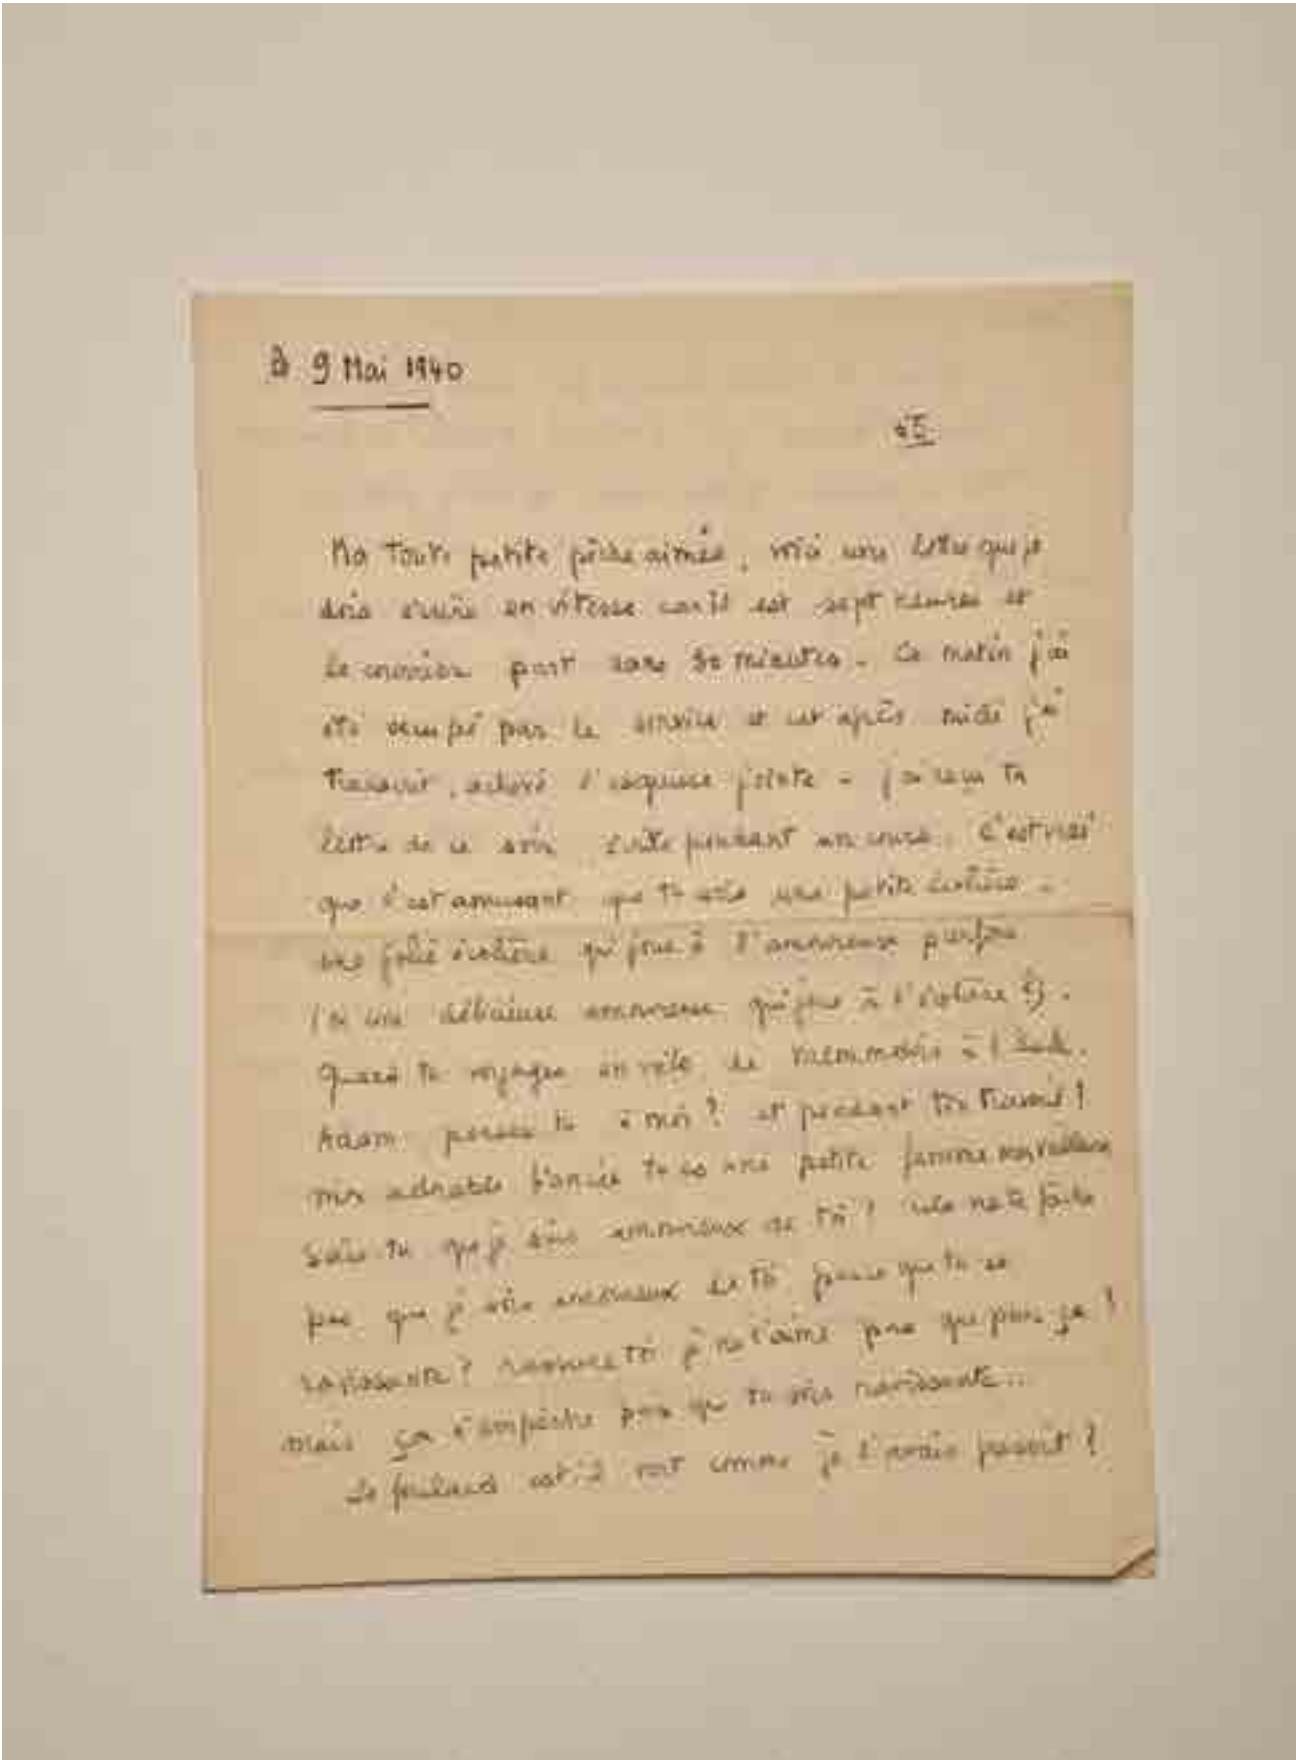 9 Mai 1940
Ma toute petite pêche aimée, voici une lettre que je
dois écrire en vitesse car il est sept heures et
le courrier part dans 30 minutes. Ce matin j'ai
été occupé par le service et cet après midi j'ai
travaillé, achevé l'esquisse jointe - j'ai reçu ta
lettre de ce soir écrite pendant un cours. C'est vrai
que c'est amusant que tu sois une petite écolière -
une jolie écolière qui joue à l'amoureuse parfois
(ou une délicieuse amoureuse qui joue à l'écolière ?).
Quand tu voyages en vélo de à
penses tu à moi ? et pendant ton travail ?
mon adorable fiancée tu es une petite femme merveilleuse
Sais tu que je suis amoureux de toi ? cela ne te fâche
pas que je sois amoureux de toi parce que tu es
ravissante ? rassure toi je ne t'aime pas que pour ça !
mais ça n'empêche pas que tu sois ravissante...
Le foulard est il vert comme je l'avais prescrit ?